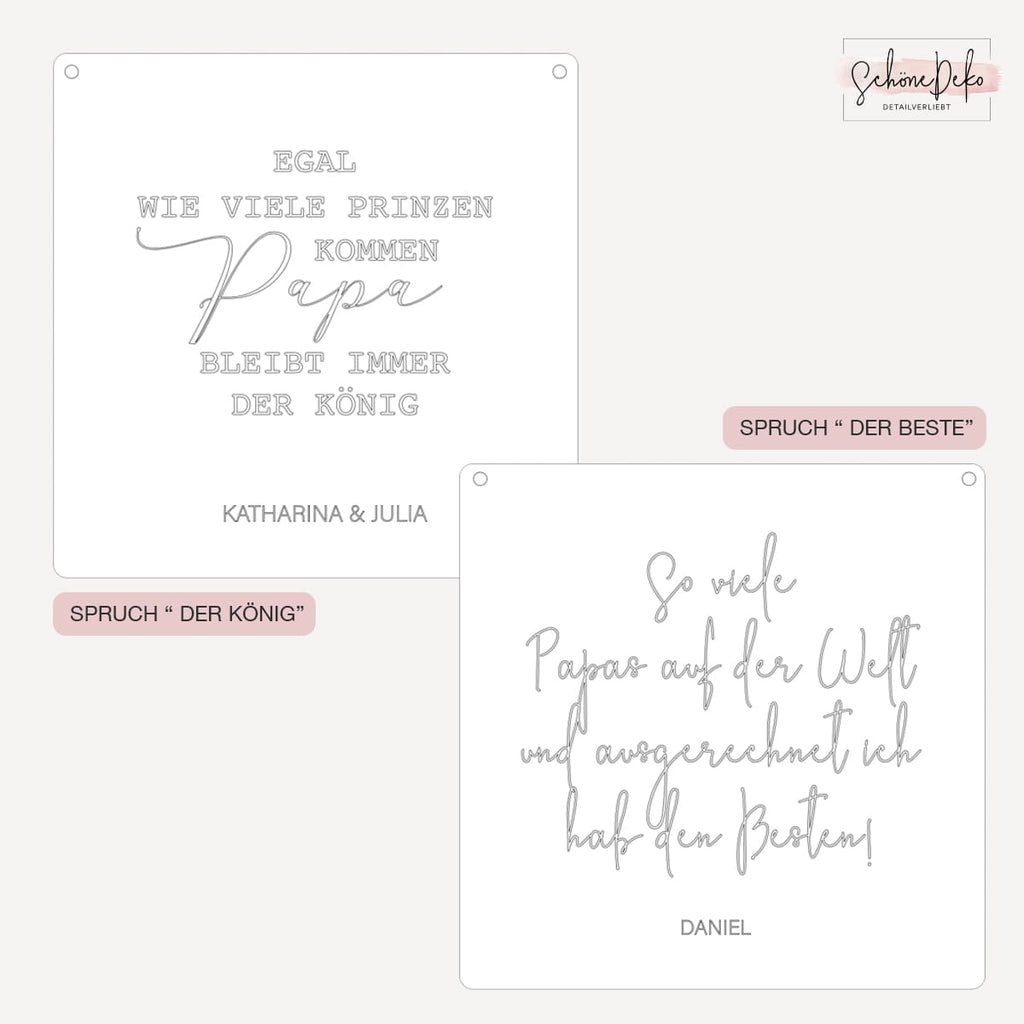 SchöneDeko
DETAILVERLIEBT
EGAL
WIE VIELE PRINZEN
KOMMEN
Papa
BLEIBT IMMER
DER KÖNIG
KATHARINA & JULIA
SPRUCH “ DER KÖNIG”
SPRUCH “ DER BESTE”
So viele
Papas auf der Welt
und ausgerechnet ich
hab den Besten!
DANIEL